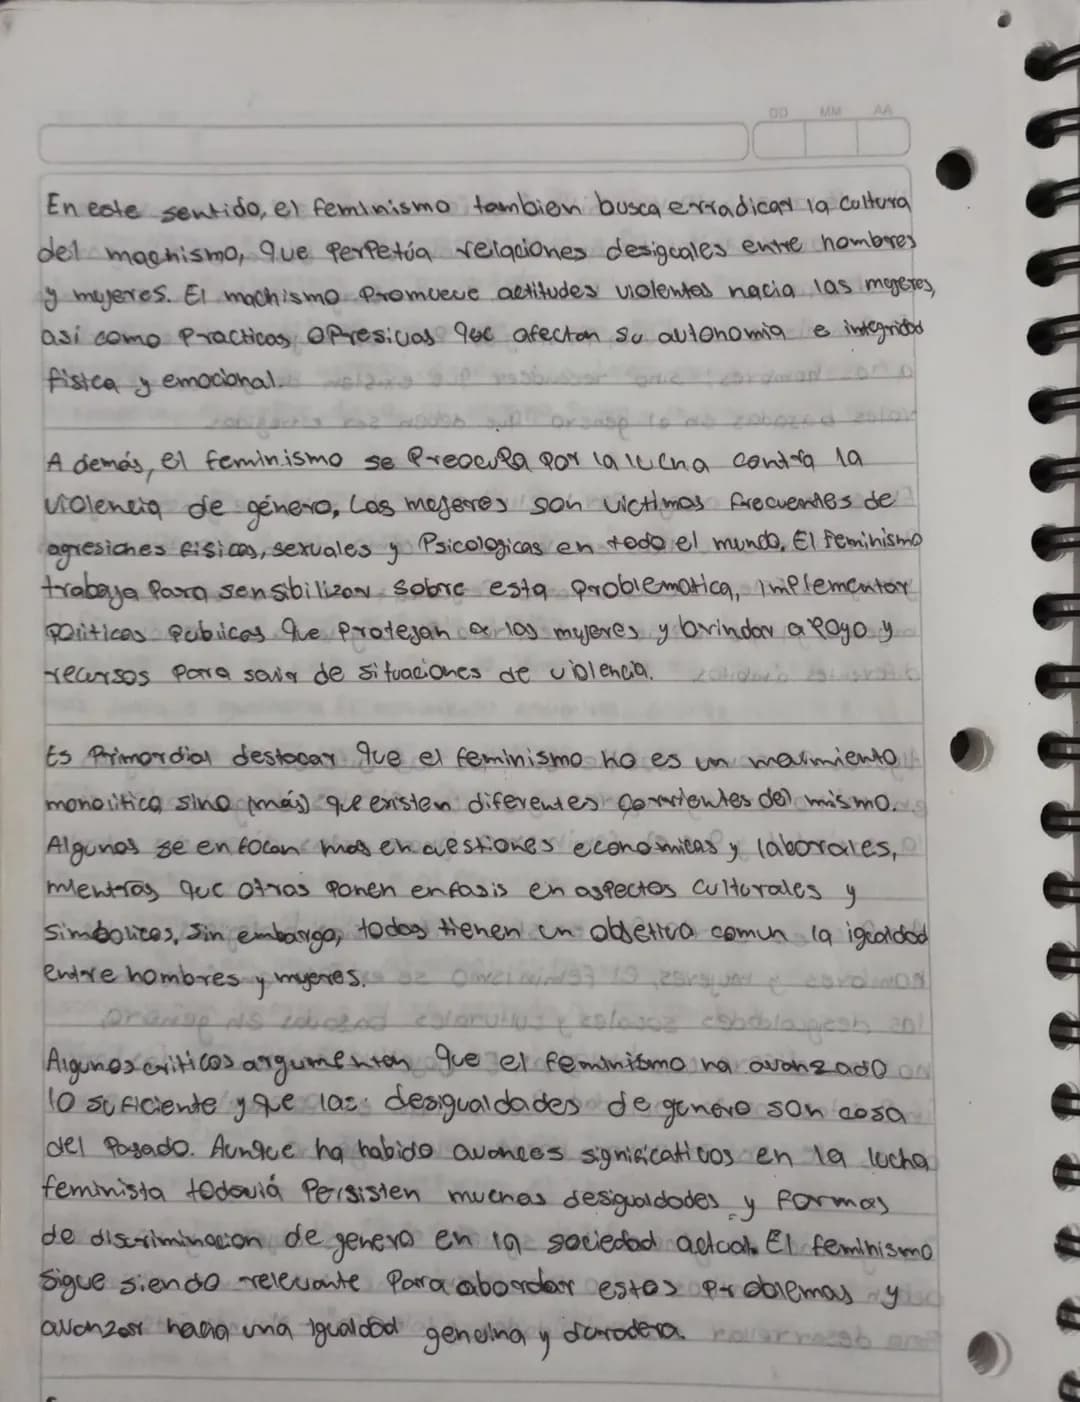 DD MM AA
En este sentido, el feminismo tambien busca erradicar la cultura
del machismo, que perpetúa relaciones desiguales entre hombres
y mujeres. El machismo promueve actitudes violentas hacia las mujeres,
así como practicas opresivas que afectan su autonomia e integridad
física y emocional.
A demás, el feminismo se preocupa por la lucha contra la
violencia de género, Las mujeres son victimas frecuentes de
agresiones fisicas, sexuales y Psicologicas en todo el mundo. El feminismo
trabaja para sensibilizar sobre esta problematica, implementar
politicas publicas que protejan a las mujeres y brindar apoyo y
recursos para salir de situaciones de violencia.
Es Primordial destacar que el feminismo no es un movimiento
monolitico sino (más) que existen diferentes corrientes del mismo.
Algunas se enfocan mas en cuestiones economicas y laborales,
mientras que otras ponen enfasis en aspectos culturales y
simbolicos, Sin embargo, todas tienen un objetivo comun la igualdad
entre hombres y mujeres.
Algunos criticos argumentan que el feminismo ha avanzado
lo suficiente y que las desigualdades de genero son cosa
del pasado. Aunque ha habido avances significativos en la lucha
feminista todaviá persisten muchas desigualdades y formas
de discriminacion de genero en la sociedad actual. El feminismo
sigue siendo relevante para abordar estos problemas y
avanzar hacia una igualdad genuina y duradera.